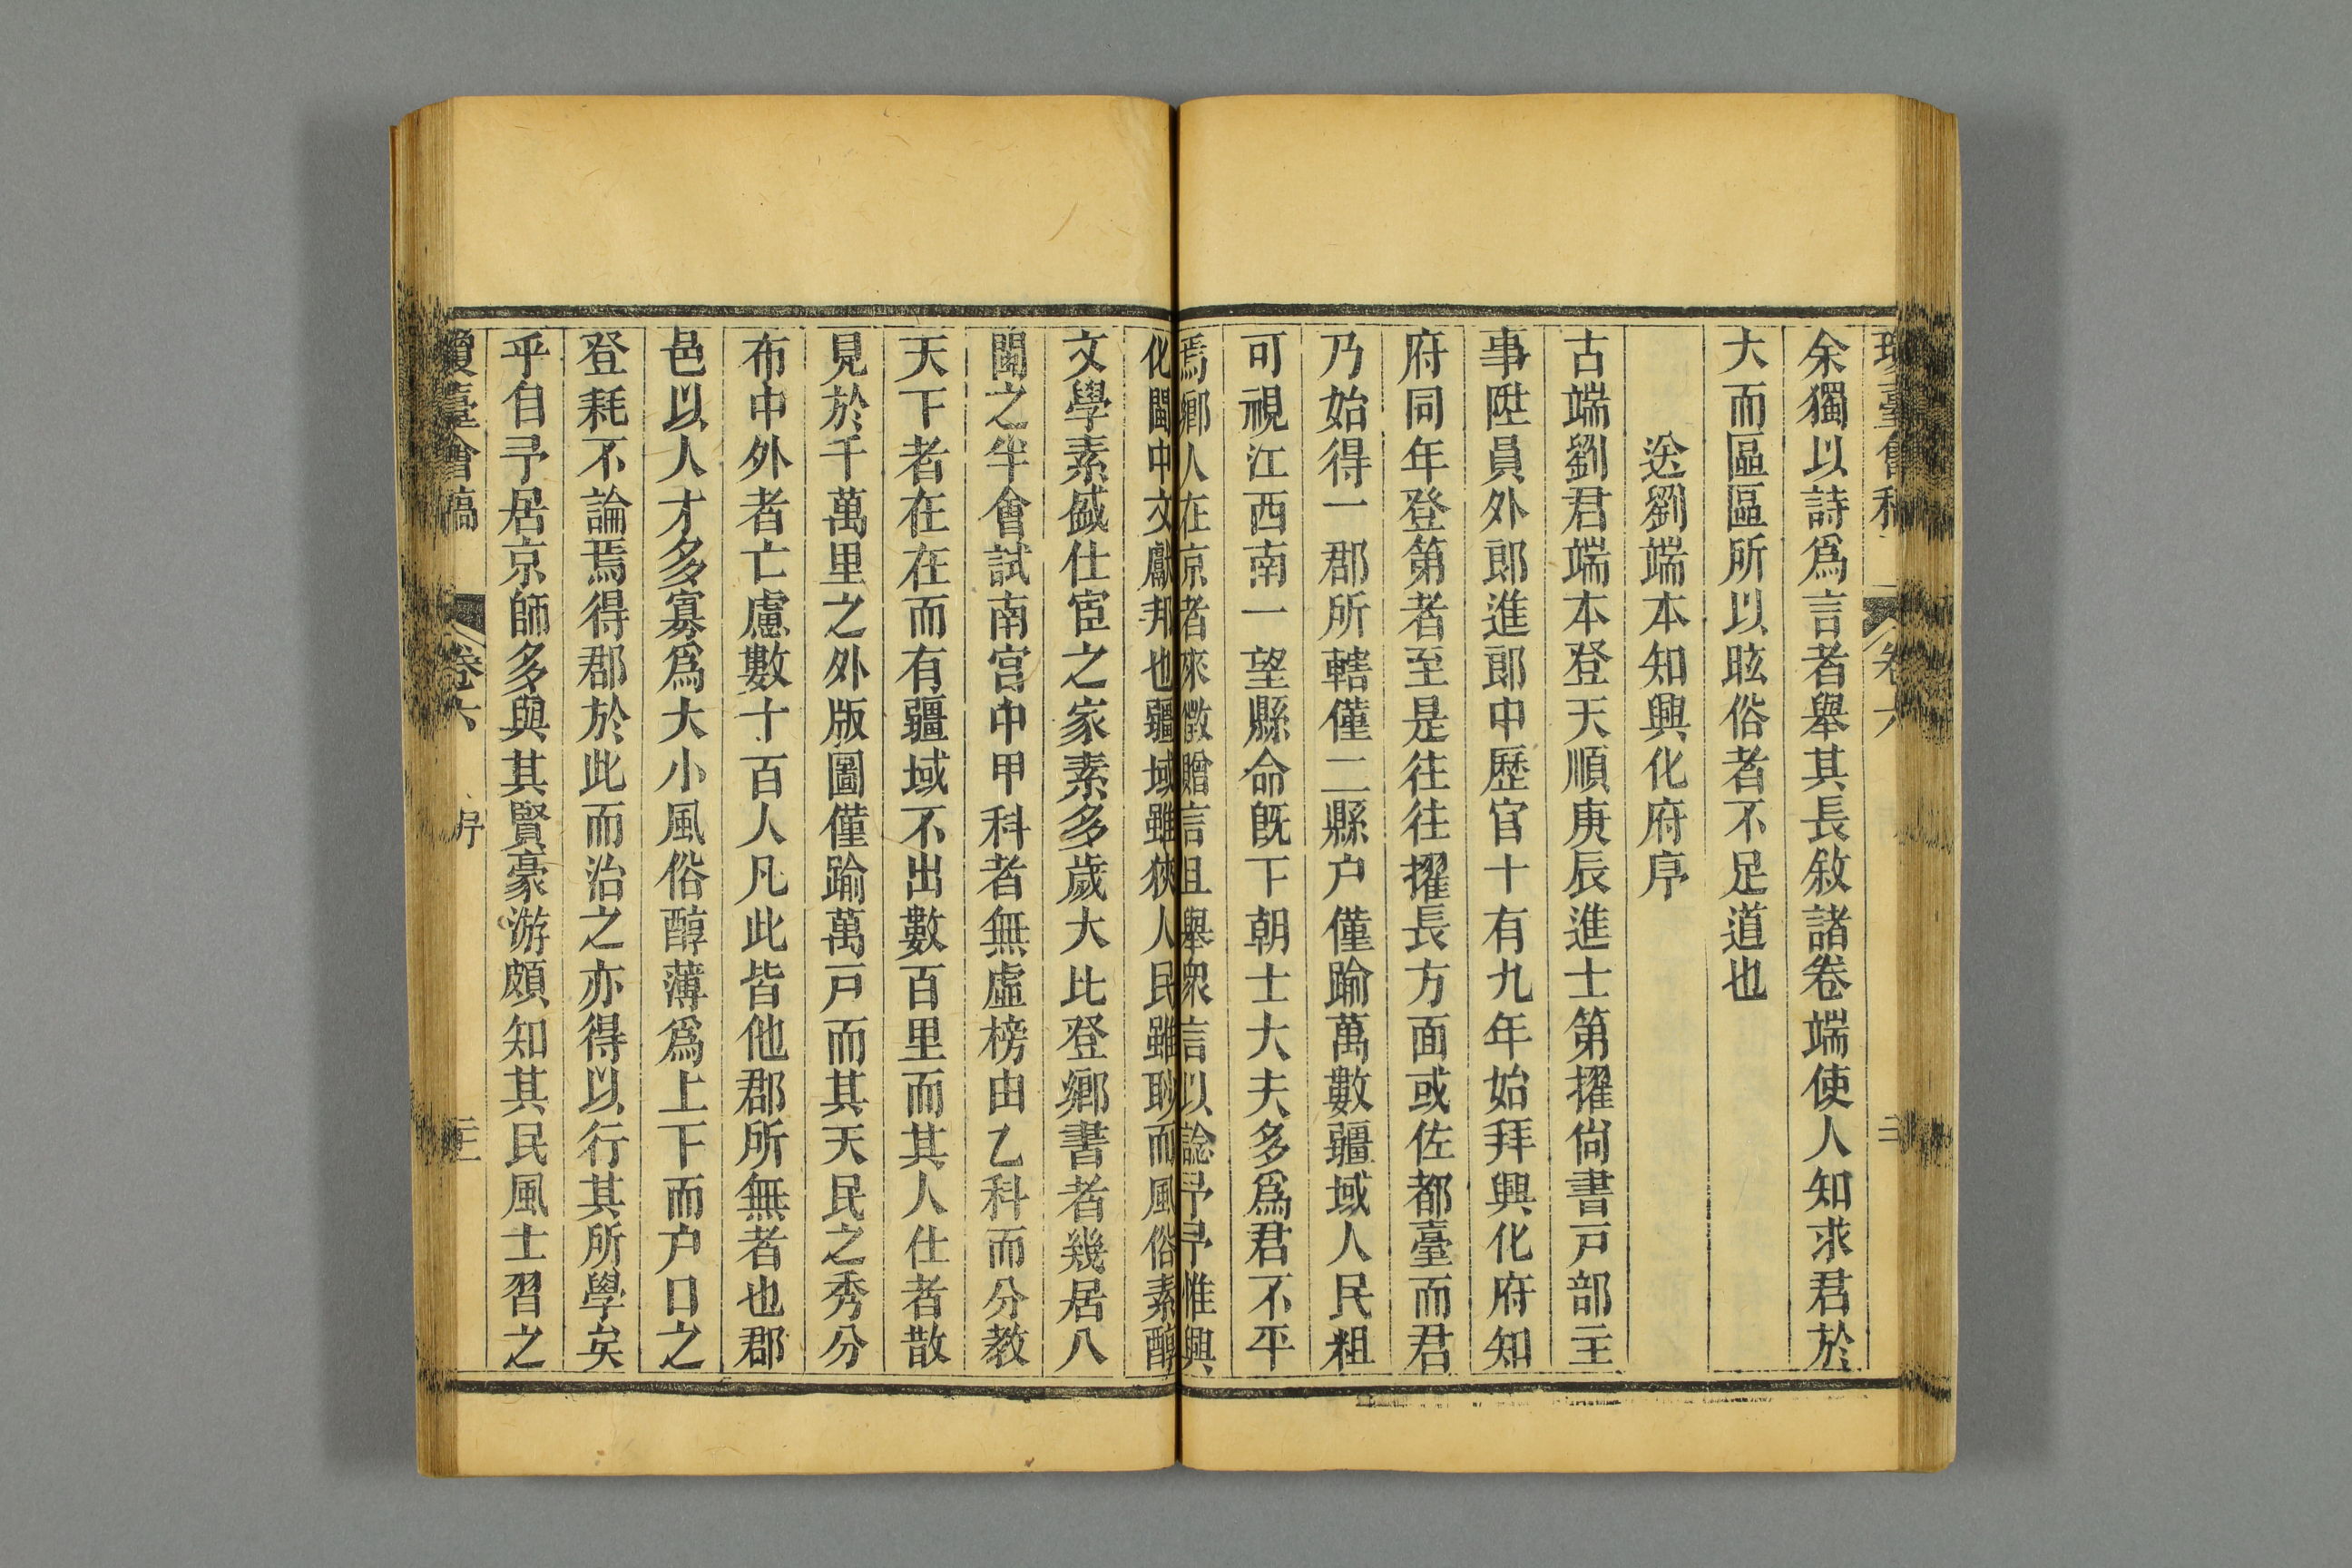 瓊臺會稿 卷六 二
余獨以詩爲言者舉其長敘諸卷端使人知求君於
大而區區所以眩俗者不足道也
送劉端本知興化府序
古端劉君端本登天順庚辰進士第擢尙書戸部主
事陞員外郎進郎中歷官十有九年始拜興化府知
府同年登第者至是往往擢長方面或佐都臺而君
乃始得一郡所轄僅二縣户僅踰萬數疆域人民粗
可視江西南一望縣命旣下朝士大夫多爲君不平
焉鄉人在京者來徵贈言且舉衆言以諗予予惟興
化閩中文獻邦也疆域雖狹人民雖耿而風俗素醇
文學素盛仕宦之家素多歲大比登鄉書者幾居八
閩之半會試南宫中甲科者無虛榜由乙科而分教
天下者在在而有疆域不出數百里而其人仕者散
見於千萬里之外版圖僅踰萬戸而其天民之秀分
布中外者亡慮數十百人凡此皆他郡所無者也郡
邑以人才多寡爲大小風俗醇薄爲上下而户口之
登耗不論焉得郡於此而治之亦得以行其所學矣
乎自予居京師多與其賢豪游頗知其民風士習之
瓊臺會稿 卷六 序 二